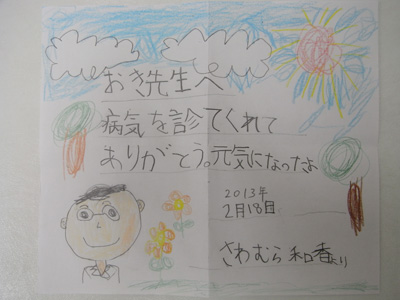 おき先生へ
病気を診てくれて
ありがとう。元気になったよ
2013年
2月18日
さわむら和香より